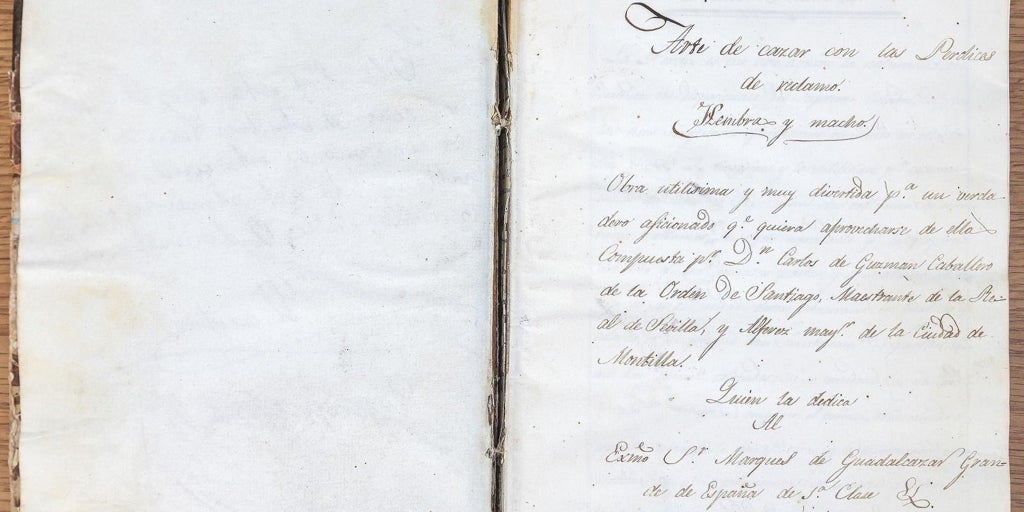 Arte de cazar con las Perdices
de reclamo.
Hembra y macho.
Obra utilisima y muy divertida p.ª un verda-
dero aficionado q.e quiera aprovecharse de ella
Compuesta p.r D.n Carlos de Guzman Caballero
de la Orden de Santiago, Maestrante de la Re-
al de Sevilla, y Alferez may.r de la Ciudad de
Montilla.
Quien la dedica
Al
Exmõ S.r Marques de Guadalcazar Gran-
de de España de 1.ª Clase &